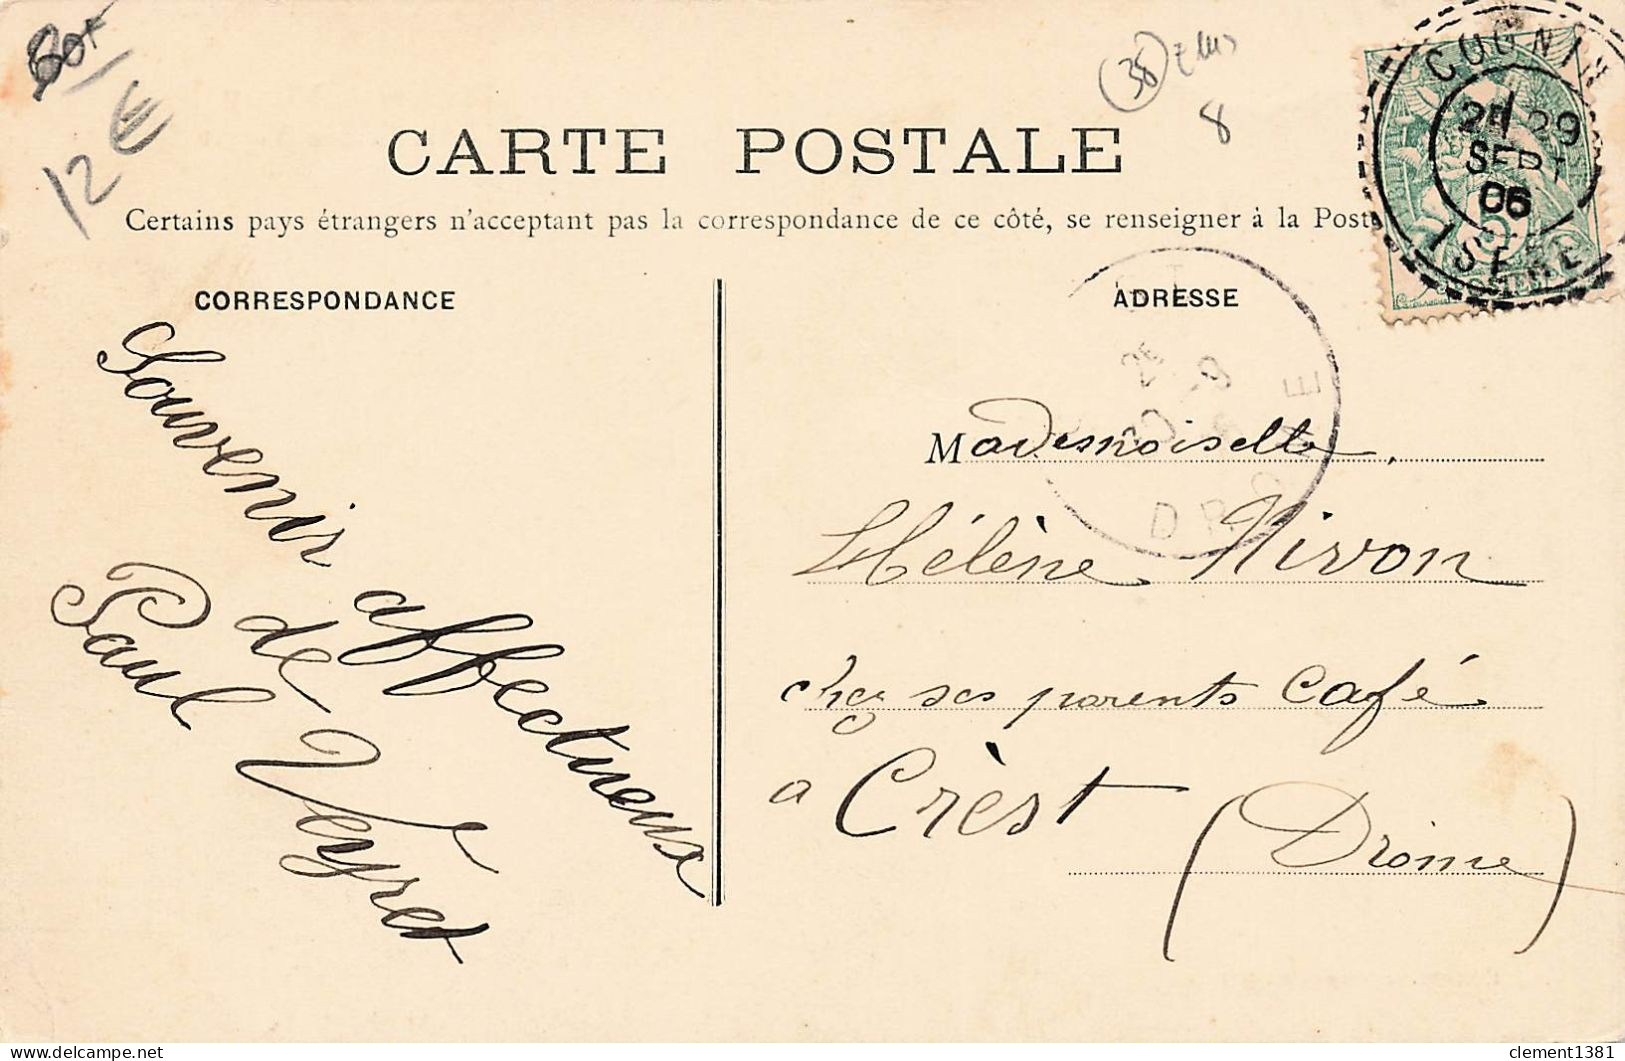 60f
12€
38
8
CARTE POSTALE
Certains pays étrangers n'acceptant pas la correspondance de ce côté, se renseigner à la Poste
COGNIN
2E 29
SEPT
06
ISERE
CORRESPONDANCE
ADRESSE
Souvenir affectueux
de
Paul Veyret
DROME
Mademoiselle
Hélène Nivon
chez ses parents Café
a Crèst
(Drome)
clement1381